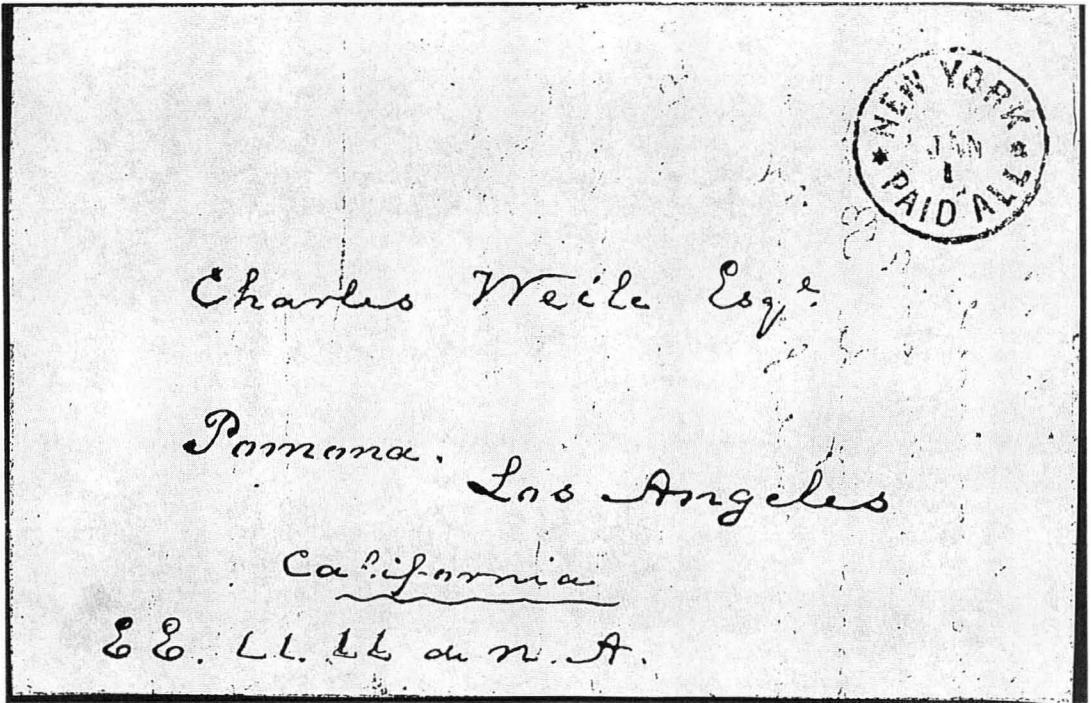 NEW YORK
JAN
1
PAID ALL
Charles Weile Esqe.
Pomona.
Los Angeles
California
EE. LL. LL de N. A.